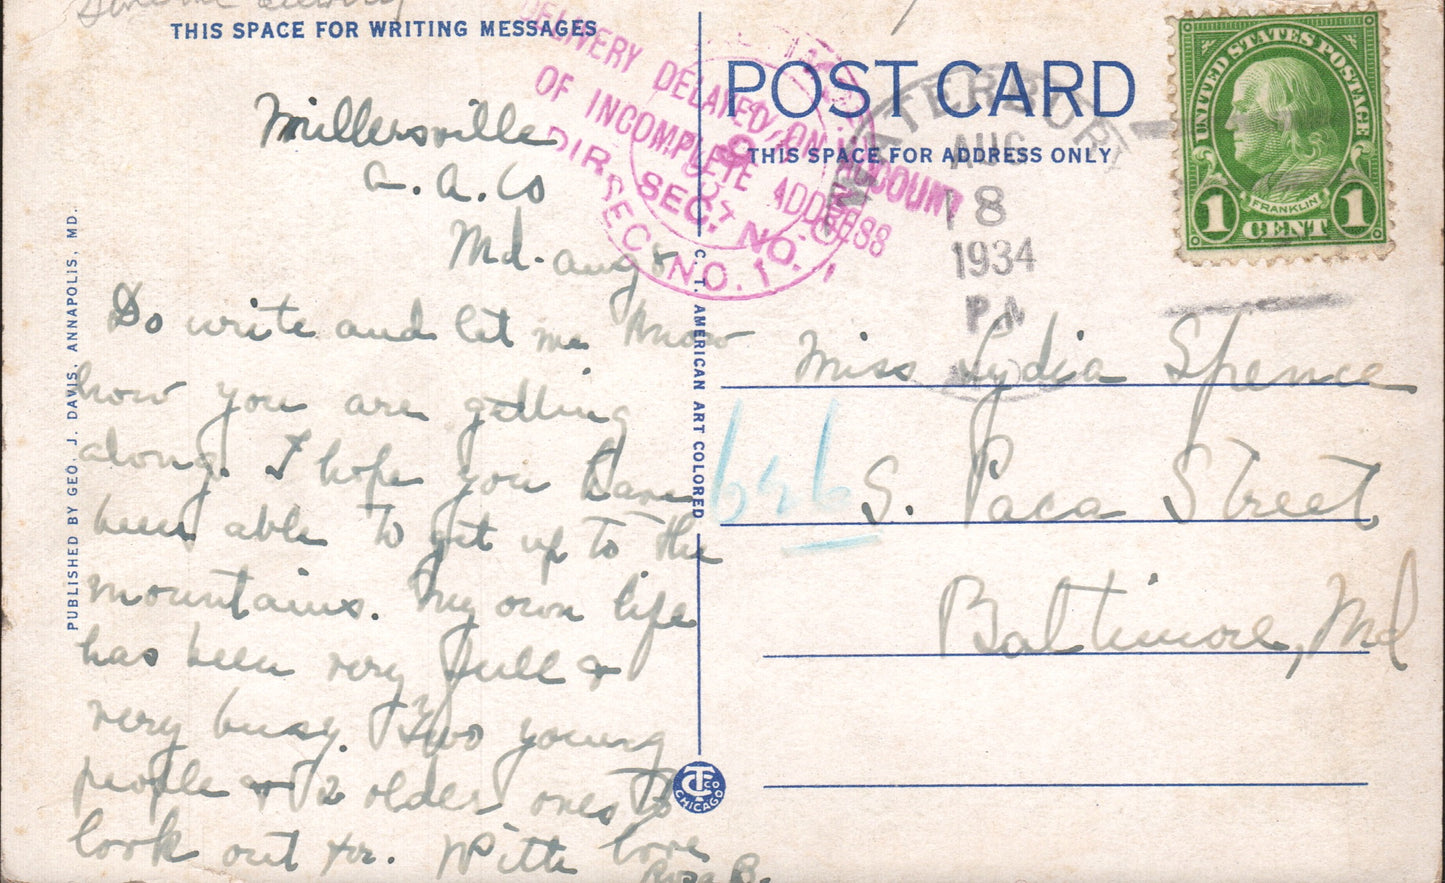 THIS SPACE FOR WRITING MESSAGES
Millersville
A. A. Co
Md. Aug 8
Do write and let me know
how you are getting
along. I hope you have
been able to get up to the
mountains. My own life
has been very full &
very busy. Two young
people & 2 older ones to
look out for. With love
Rosa B.
PUBLISHED BY GEO. J. DAVIS, ANNAPOLIS, MD.
C. T. AMERICAN ART COLORED
CTCO
CHICAGO
DELIVERY DELAYED ON ACCOUNT
OF INCOMPLETE ADDRESS
DIR. SEC. NO. 1
SEC. NO. 1
POST CARD
THIS SPACE FOR ADDRESS ONLY
AUG
8
1934
PM
MD
UNITED STATES POSTAGE
FRANKLIN
1 CENT 1
Miss Lydia Spence
646 S. Paca Street
Baltimore, Md